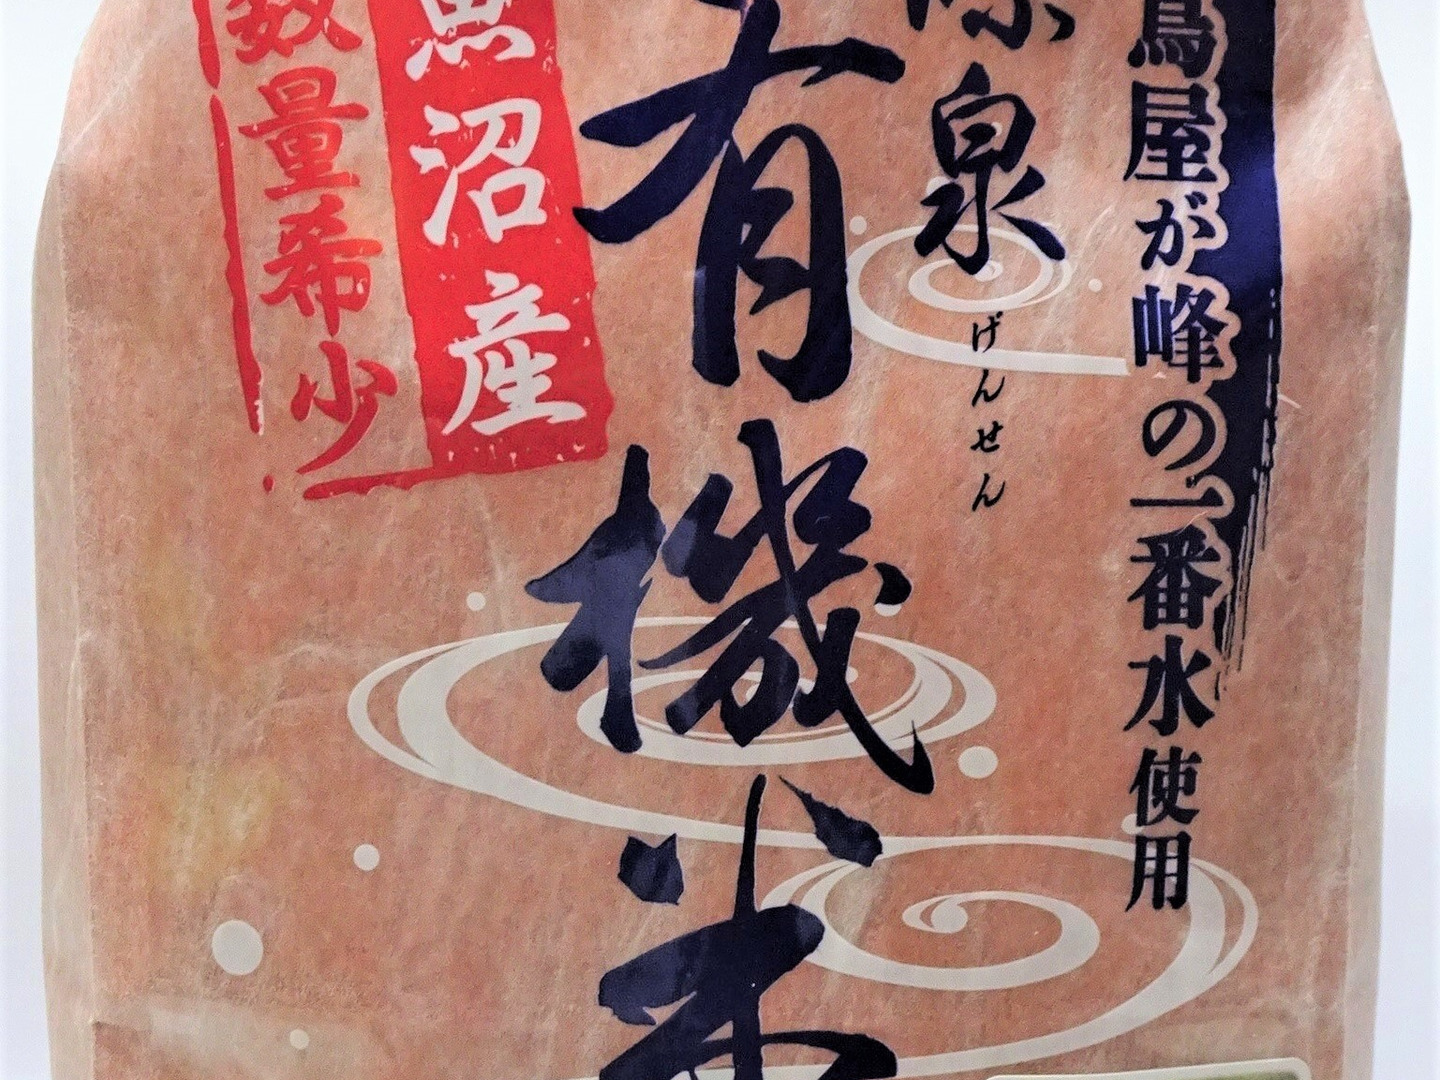 鳥屋が峰の一番水使用
源泉
げんせん
有機米
魚沼産
数量希少